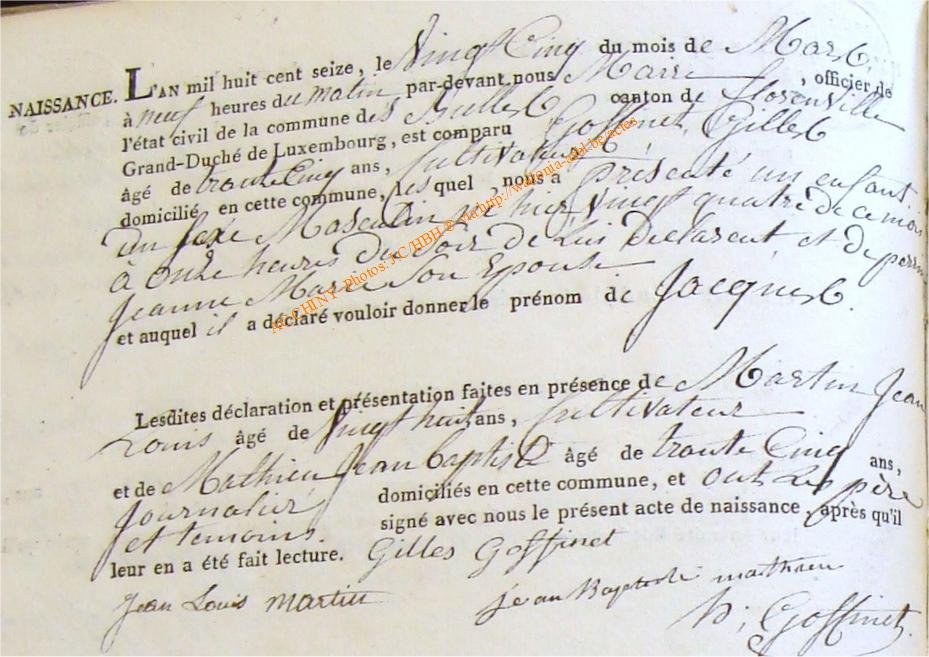 NAISSANCE. L'AN mil huit cent seize, le Vingt Cinq du mois de Mars
à neuf heures du matin par-devant nous Maire, officier de
l'état civil de la commune des Bulles canton de florenville
Grand-Duché de Luxembourg, est comparu Goffinet, Gilles
âgé de trante Cinq ans, Cultivateur
domicilié en cette commune, Les quel, nous a présenté un enfant
du sexe Masculin né hier Vingt quatre de ce mois
à onze heures du Soir de Lui Declarent et de perrin
Jeanne Marie Son Epouse
et auquel il a déclaré vouloir donner le prénom de Jacques.
Lesdites déclaration et présentation faites en présence de Martin Jean
Louis âgé de Vingt huit ans, Cultivateur
et de Mathieu Jean baptiste âgé de trante Cinq ans,
Journalier domiciliés en cette commune, et ont Les père
et temoins signé avec nous le présent acte de naissance, après qu'il
leur en a été fait lecture. Gilles Goffinet
Jean Louis Martin jean Baptiste mathieu
Goffinet.
Photos: JC/HBH